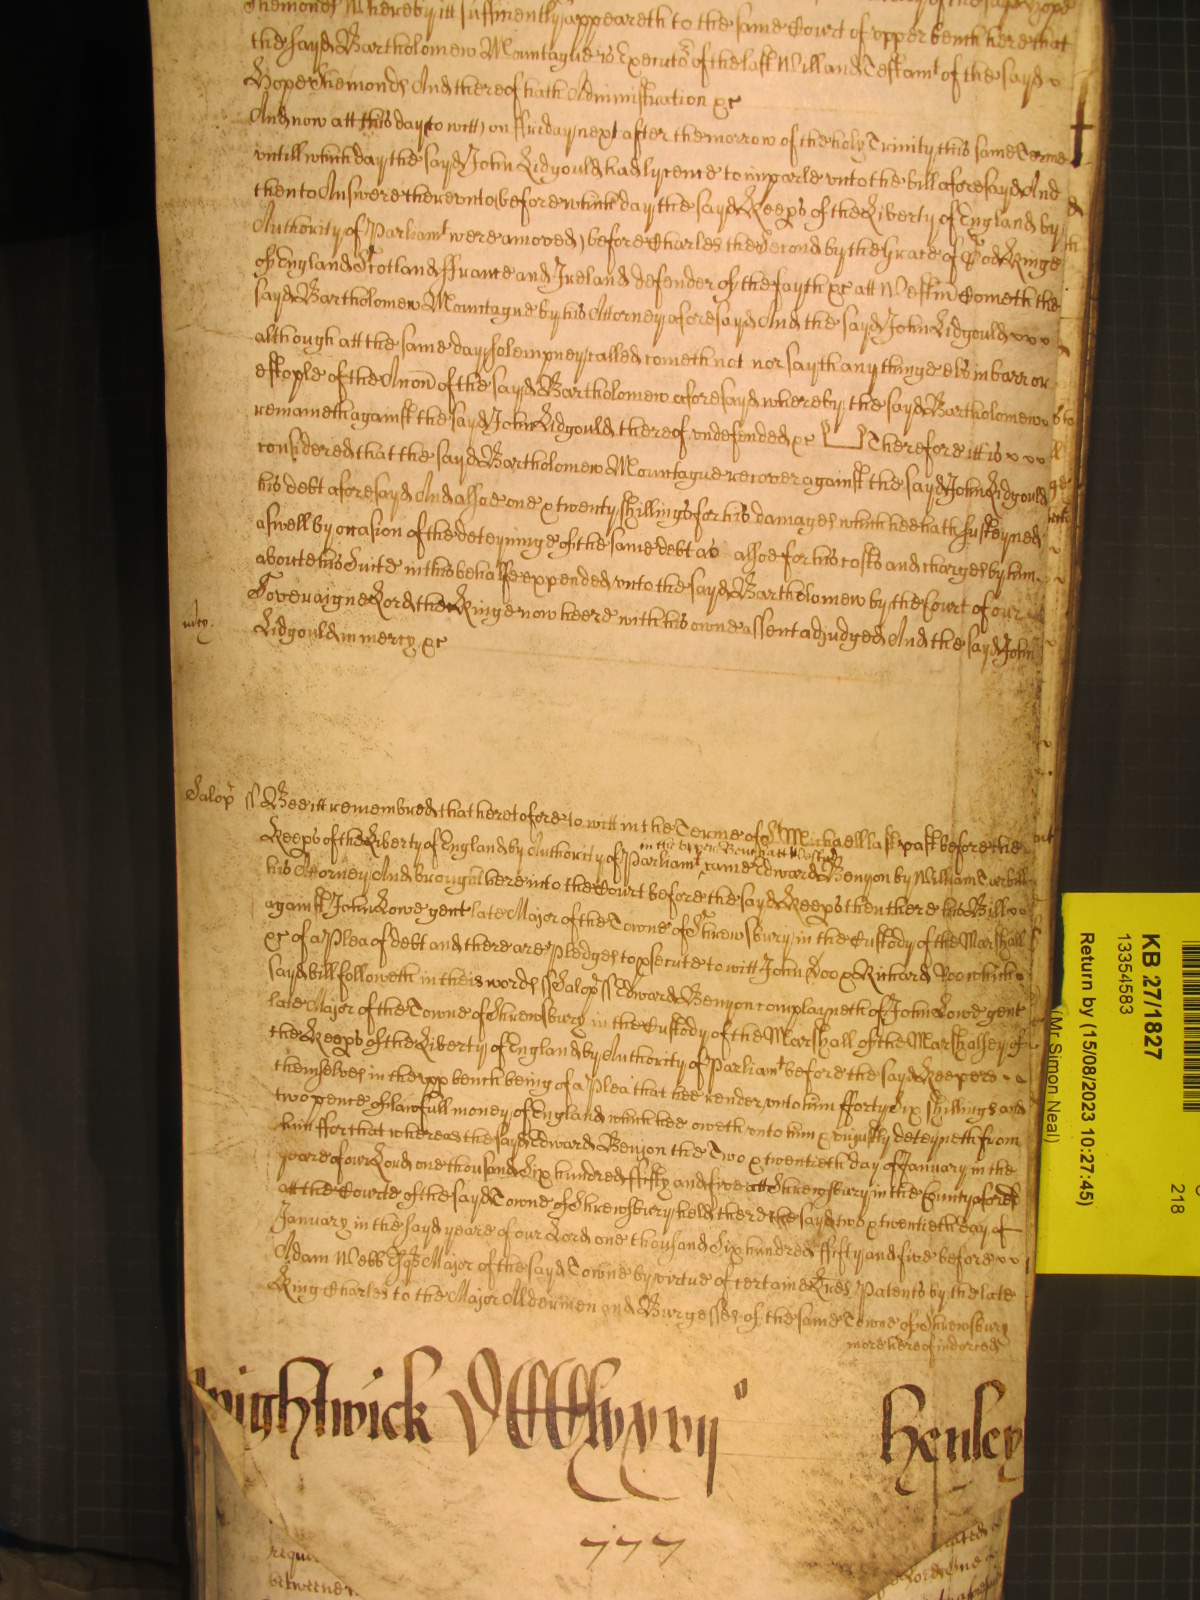 Shemonds Whereby itt sufficiently appeareth to the same Court of upper bench here that
the sayd Bartholomew Mountague is Executor of the last Will and Testamt of the sayd
Hope Shemonds And thereof hath Administration &c
And now att this day (to witt) on ffriday next after the morrow of the holy Trinity this same Terme
untill which day the sayd John Lidgould had lycence to imparle unto the bill aforesayd And
then to Answere thereunto (before which day the sayd Keeps of the Liberty of England by
Authority of Parliamt were amoved) before Charles the Second by the Grace of God Kinge
of England Scotland ffrance and Ireland defender of the fayth &c att Westm Cometh the
sayd Bartholomew Mountague by his Attorney aforesayd And the sayd John Lidgould
although att the same day solempney called cometh not nor sayth any thinge els in barr or
estople of the Accon of the sayd Bartholomew aforesayd whereby the sayd Bartholomew
remaineth against the sayd John Lidgould thereof undefended &c Therefore itt is
considered that the sayd Bartholomew Mountague recover against the sayd John Lidgould
his debt aforesayd And alsoe one & twenty shillings for his damages which hee hath susteyned
aswell by occasion of the deteyninge of the same debt as alsoe for his costs and charges by him
about his Suite in this behalfe expended unto the sayd Bartholomew by the Court of our
Soveraigne Lord the Kinge now heere with his owne assent adjudged And the sayd John
mcy.
Lidgould in mercy &c
Salop ss Bee itt remembred that heretofore to witt in the Terme of St Michaell last past before the
Keeps of the Liberty of England by Authority of Parliamt in the upper Bench att Westm came Edward Benyon by William
his Attorney And brought here into the Court before the sayd Keeps then there his Bill
against John Lowe gent late Major of the Towne of Shrewsbury in the Custody of the Marshall
&c of a Plea of debt and there are Pledges to psecute to witt John Doo & Richard Roo which
sayd bill followeth in theis words ss Salop ss Edward Benyon complayneth of John Lowe gent
late Major of the Towne of Shrewsbury in the Custody of the Marshall of the Marshalsey of
the Keeps of the Liberty of England by Authority of Parliamt before the sayd Keepers
themselves in the upp bench being of a Plea that hee render unto him fforty Six shillings and
two pence of lawfull money of England which hee oweth unto him & uniustly deteyneth from
him ffor that whereas the sayd Edward Benyon the Two & twentieth day of January in the
yeare of our Lord one thousand Six hundred ffifty and five att Shrewsbury in the County aforesd
att the Courte of the sayd Towne of Shrewsbury held there the sayd two & twentieth day of
January in the sayd yeare of our Lord one thousand Six hundred ffifty and five before
Adam Webb Esqr Major of the sayd Towne by virtue of certaine Lres Patents by the late
King Charles to the Major Aldermen and Burgesses of the same Towne of Shrewsbury
more hereof indorced
Wightwick
Henley
777
KB 27/1827
13354583
Return by (15/08/2023 10:27:45)
(Mr Simon Neal)
218